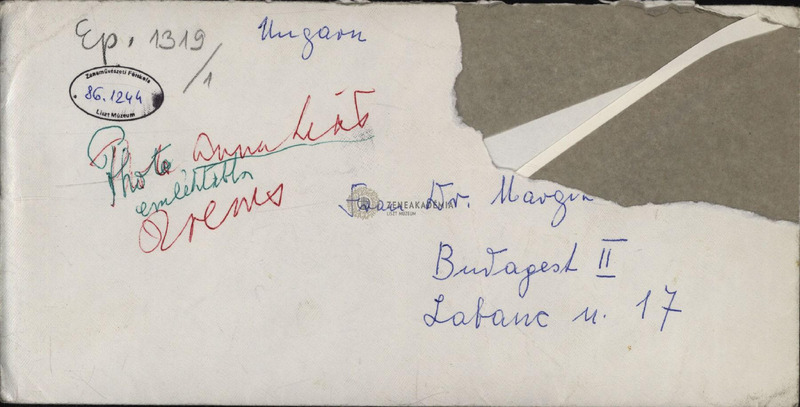 Ep. 1319
/1
Ungarn
Zeneművészeti Főiskola
86.1244
Liszt Múzeum
Photo Anna Liszt
emléktábla
Krems
Frau Dr. Margit
ZENEAKADÉMIA
LISZT MÚZEUM
Budapest II
Labanc u. 17